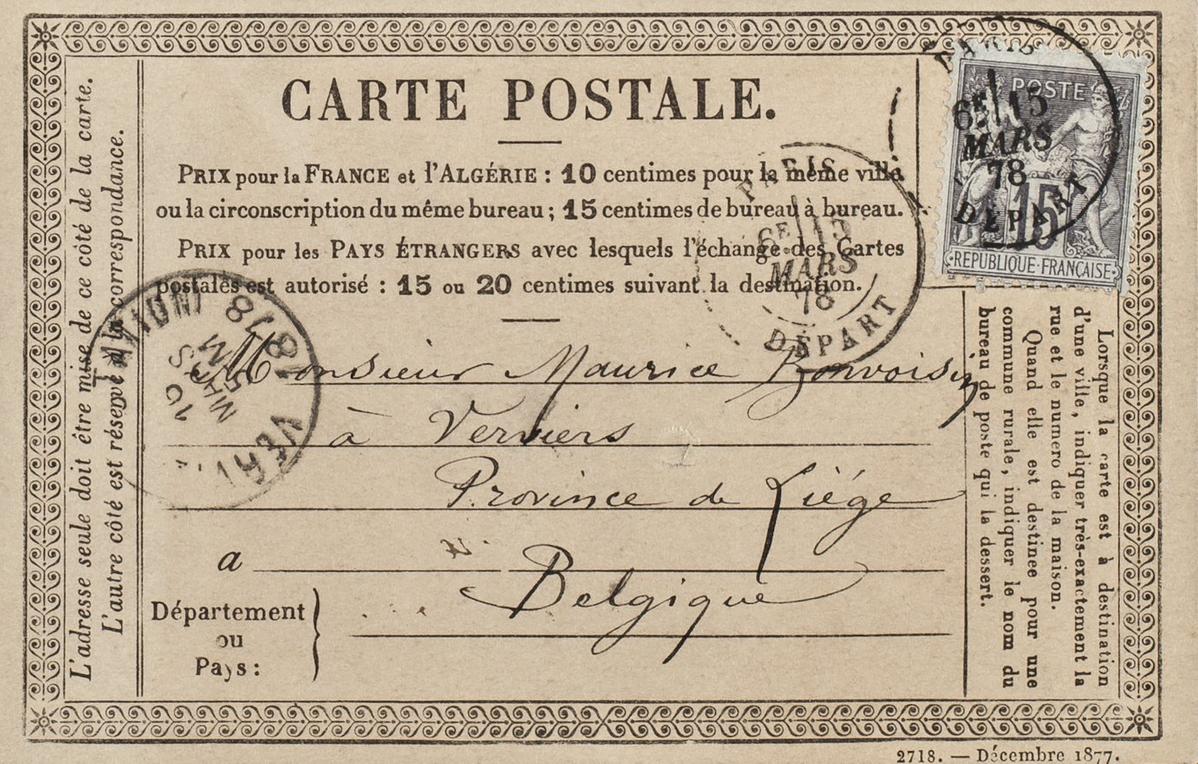 CARTE POSTALE.
PRIX pour la FRANCE et l'ALGÉRIE : 10 centimes pour la même ville
ou la circonscription du même bureau ; 15 centimes de bureau à bureau.
PRIX pour les PAYS ÉTRANGERS avec lesquels l'échange des Cartes
postales est autorisé : 15 ou 20 centimes suivant la destination.
POSTE
15
REPUBLIQUE FRANÇAISE
PARIS
6E 15
MARS
78
DÉPART
PARIS
6E 15
MARS
78
DÉPART
L'adresse seule doit être mise de ce côté de la carte.
L'autre côté est réservé à la correspondance.
1878
Monsieur Maurice Bonvoisin
à Verviers
Province de Liége
a
Belgique
Département
ou
Pays :
Lorsque la carte est à destination
d'une ville, indiquer très-exactement la
rue et le numero de la maison.
Quand elle est destinée pour une
commune rurale, indiquer le nom du
bureau de poste qui la dessert.
2718. — Décembre 1877.